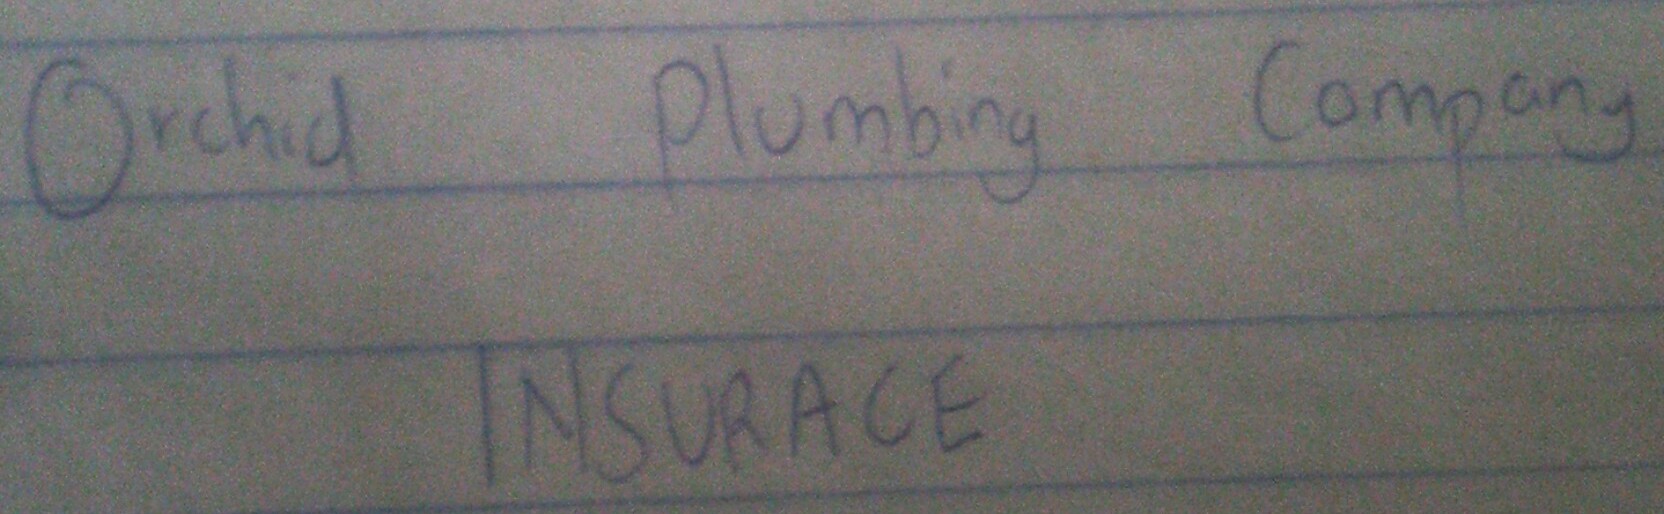 Orchid Plumbing Company
INSURACE